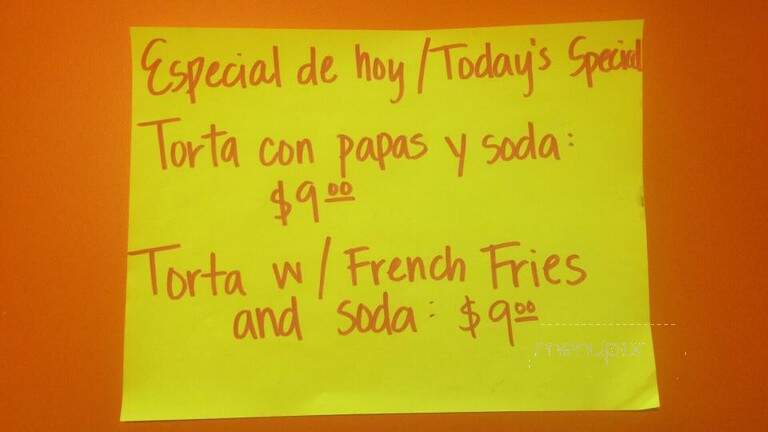 Especial de hoy/Today's Special
Torta con papas y soda:
$9.00
Torta w/ French Fries
and soda: $9.00
menupix